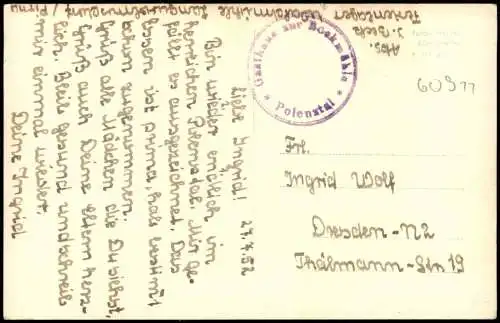 Abs.
J. Beck
Ferienlager Bockmühle
Langburkersdorf / Pirna
27.7.52
Liebe Ingrid!
Bin wieder endlich im
herrlichen Polenztal. Mir ge-
fällt es ausgezeichnet. Das
Essen ist prima, hab bestimmt
schon zugenommen.
Grüß alle Mädchen die Du siehst,
Grüß auch Deine Eltern herz-
lich. Bleib gesund und schreib
mir einmal wieder.
Deine Ingrid
Gasthaus zur Bockmühle
* Polenztal *
60977
Frl.
Ingrid Wolf
Dresden-N2
Thälmann-Str 19